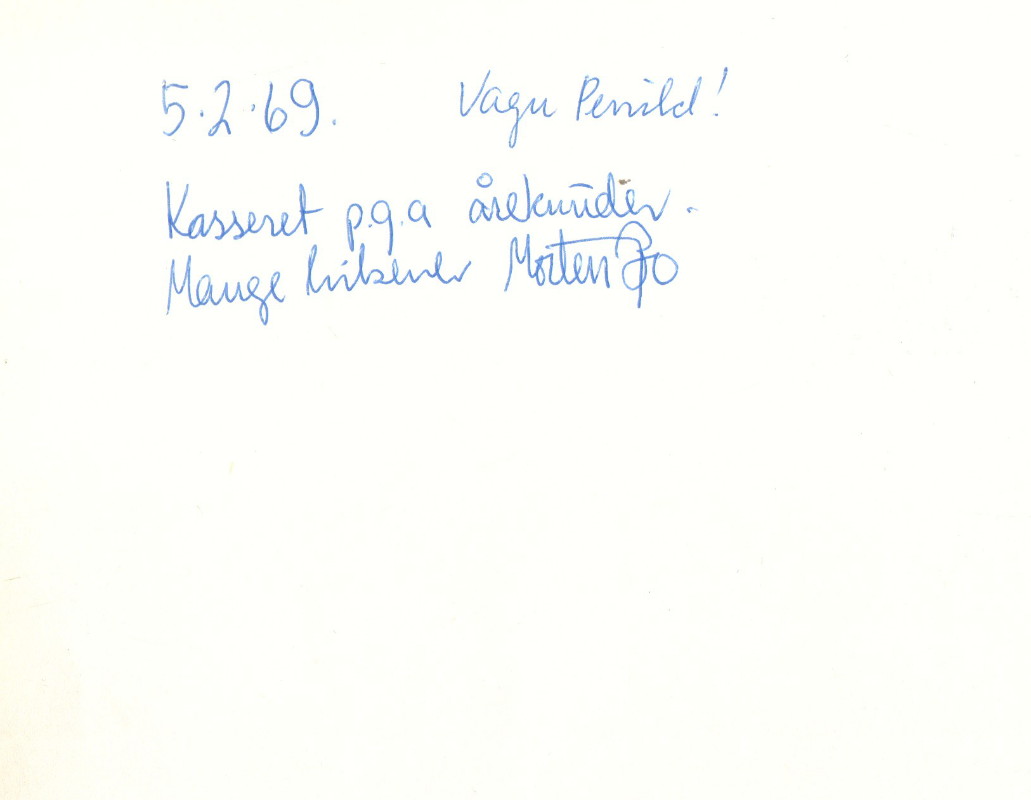 5.2.69. Vagn Penild!
Kasseret p.g.a åreknuder.
Mange hilsener Morten Bo